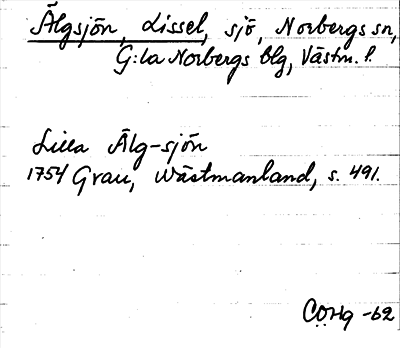 Älgsjön, Lissel, sjö, Norbergs sn,
G:la Norbergs blg, Västm. l.
Lilla Älg-sjön
1754 Grau, Wästmanland, s. 491.
COHg -62